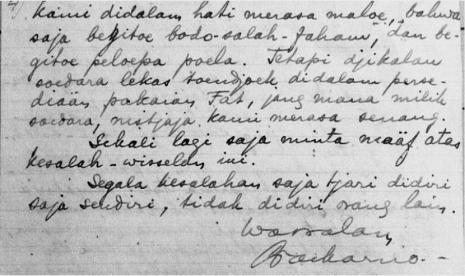 kami didalam hati merasa maloe, bahwa
saja begitoe bodo-salah-faham, dan be-
gitoe peloepa poela. Tetapi djikalau
soedara lekas toendjoek didalam perse-
diaän pakaian Fat, jang mana milik
soedara, nistjaja kami merasa senang.
Sekali lagi saja minta maäf atas
kesalah-wisselan ini.
Segala kesalahan saja tjari didiri
saja sendiri, tidak didiri orang lain.
Wassalam
Soekarno.-